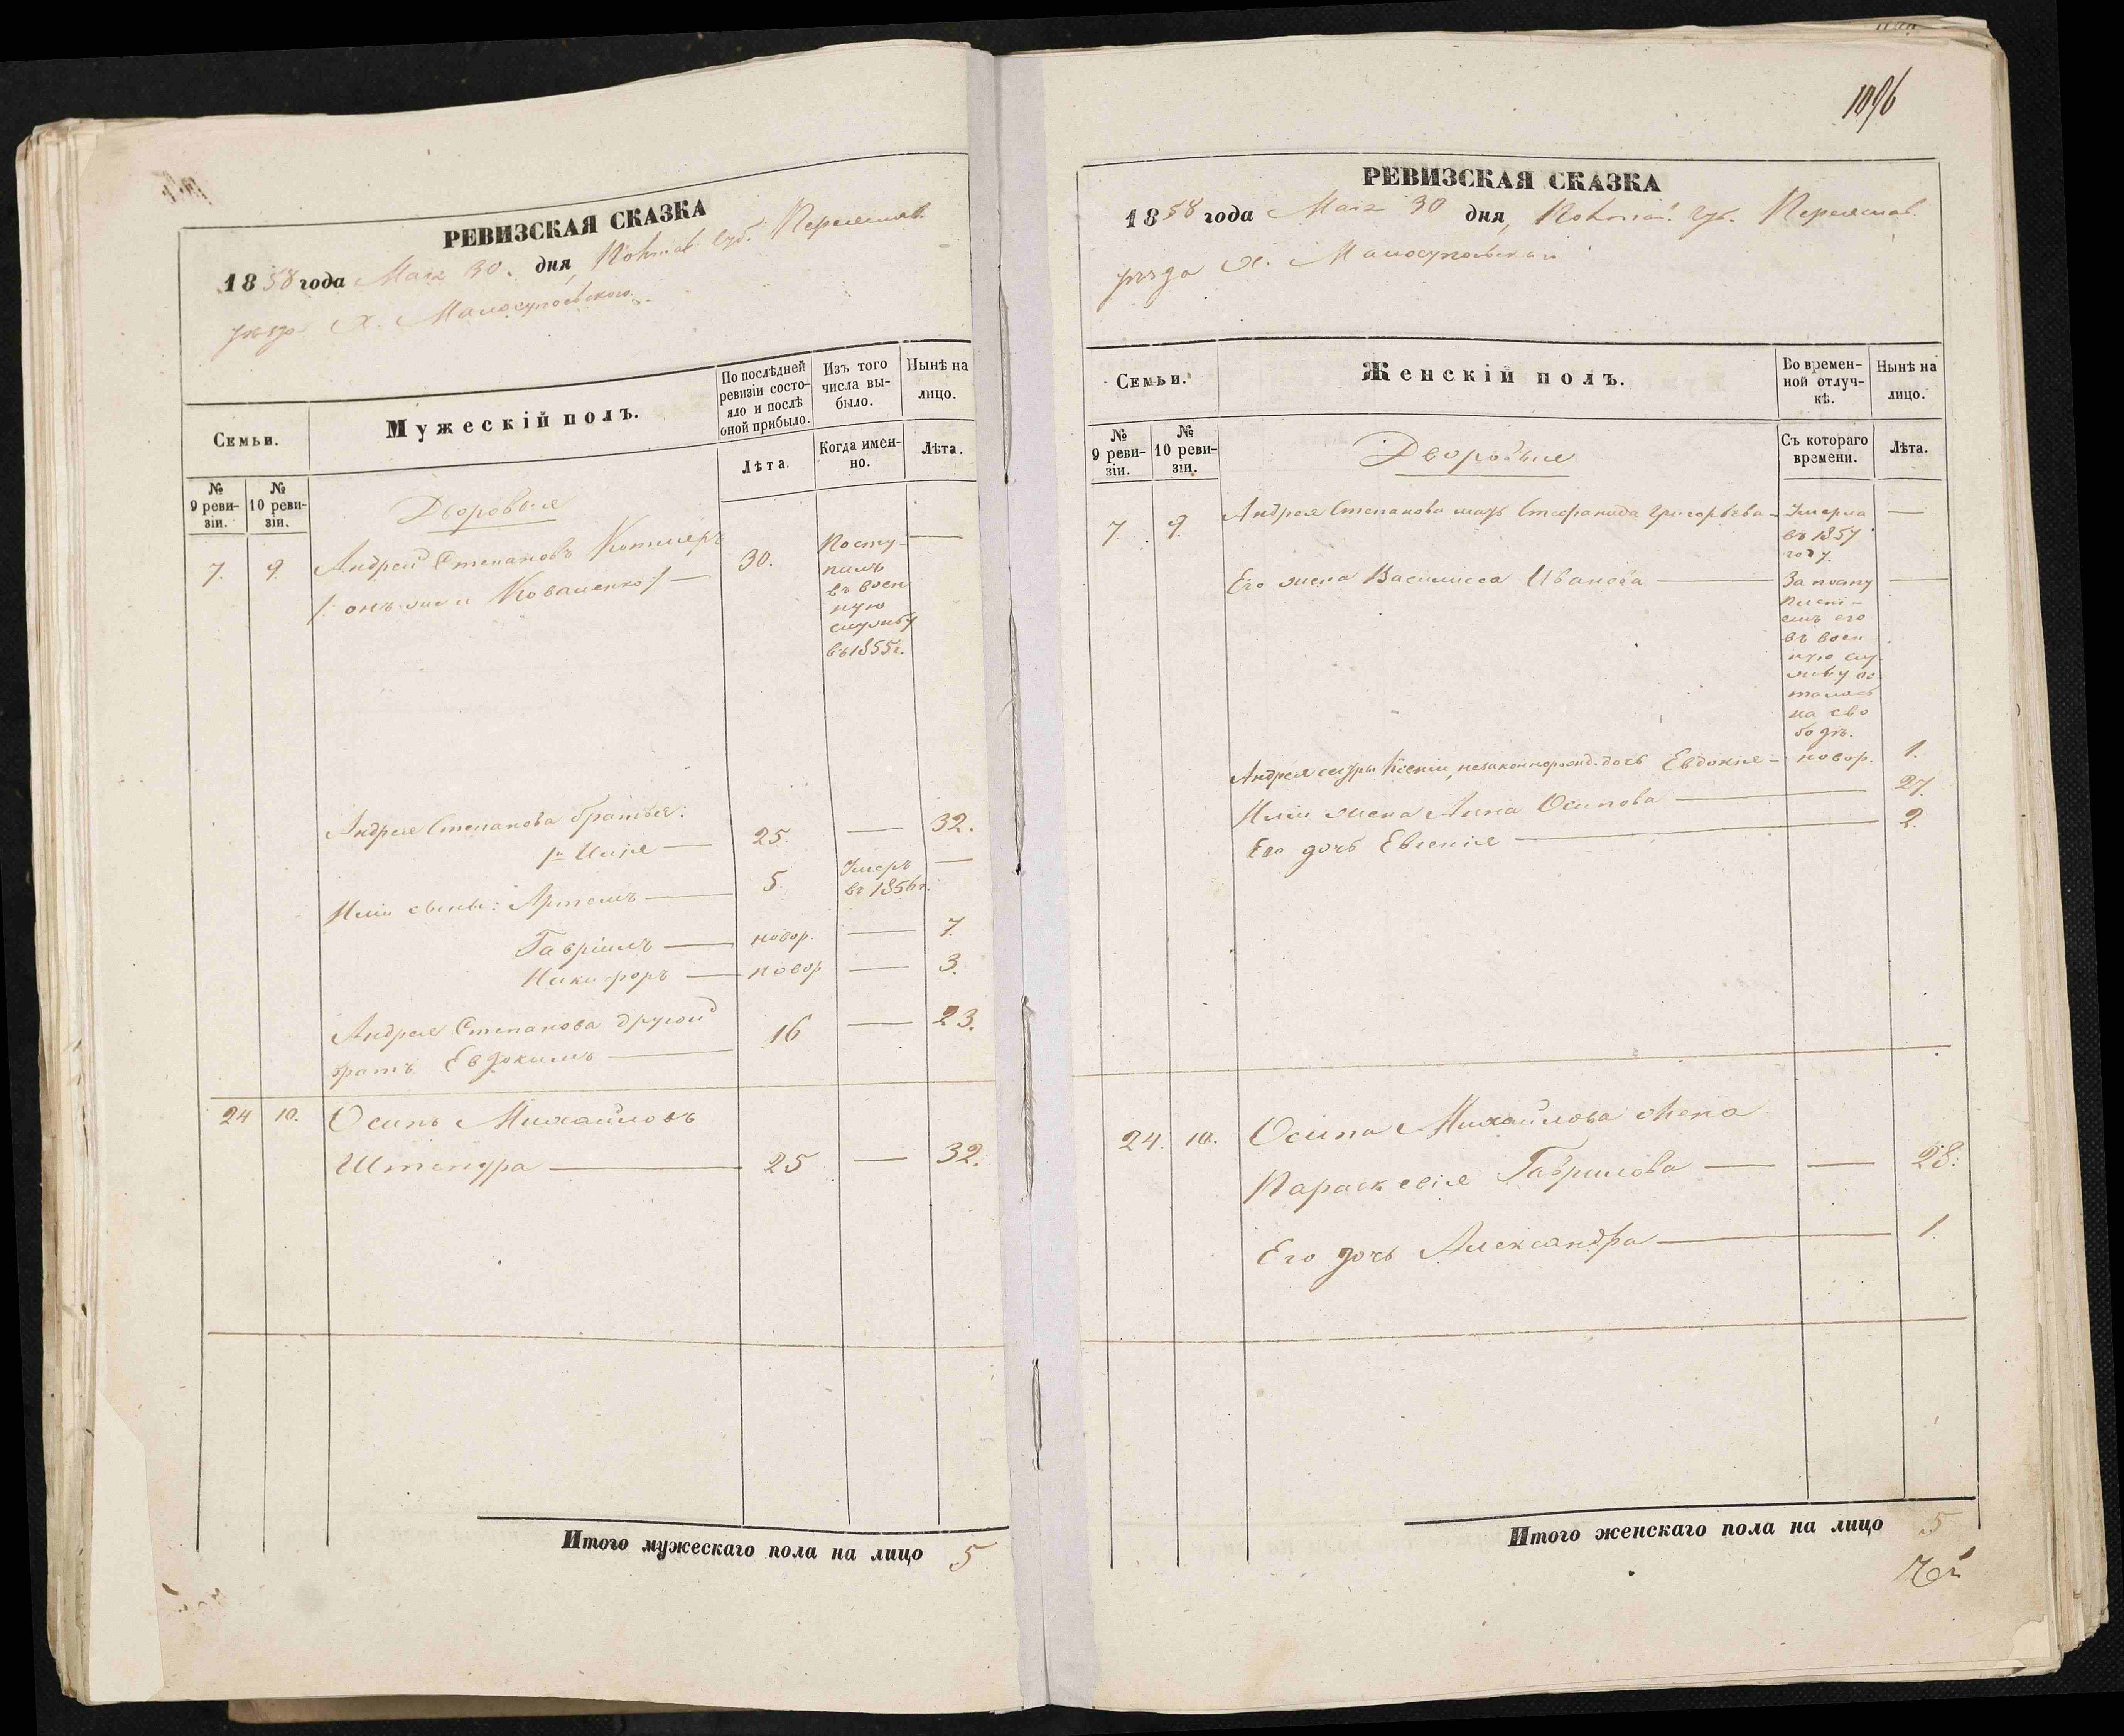 РЕВИЗСКАЯ СКАЗКА
1858 года Маія 30. дня, Полтав. Губ. Переяслав.
уѣзда Х. Малосупоевскаго.
Семьи.
Мужескій полъ.
По послѣдней ревизіи состо-
яло и послѣ
оной прибыло.
Изъ того
числа вы-
было.
Нынѣ на
лицо.
№
9 реви-
зіи.
№
10 реви-
зіи.
Лѣта.
Когда имен-
но.
Лѣта.
Дворовые
7. 9. Андрей Степановъ
/: онъ же и Коваленко :/ — 30.
Посту-
пилъ
въ воен
ную
службу
въ 1855 г.
—
Андрея Степанова братья:
1й Илія — 25. — 32.
Иліи сыны: Артемъ — 5. Умеръ
въ 1856 г. —
Гавріилъ — новор. — 7.
Никифоръ — новор — 3.
Андрея Степанова другой
братъ Евдокимъ — 16 — 23.
24 10. Осипъ Михайловъ
Штепура — 25 — 32.
Итого мужескаго пола на лицо 5
1096
РЕВИЗСКАЯ СКАЗКА
1858 года Маія 30 дня, Полтав. Губ. Переяслав.
уѣзда Х. Малосупоевскаго
Семьи.
Женскій полъ.
Во времен-
ной отлуч-
кѣ.
Нынѣ на
лицо.
№
9 реви-
зіи.
№
10 реви-
зіи.
Съ котораго
времени.
Лѣта.
Дворовые
7. 9. Андрея Степанова мать Стефанида Григорьева — Умерла
въ 1857
году —
Его жена Василисса Иванова — За посту
плені-
емъ его
въ воен
ную слу
жбу ос
талась
на сво
бодѣ. —
Андрея сестры Ксеніи, незаконнорожд. дочь Евдокія — новор. 1.
Иліи жена Анна Осипова — 27.
Его дочь Евгенія — 2.
24. 10. Осипа Михайлова жена
Параскевія Гаврилова — — 28.
Его дочь Александра — 1.
Итого женскаго пола на лицо 5